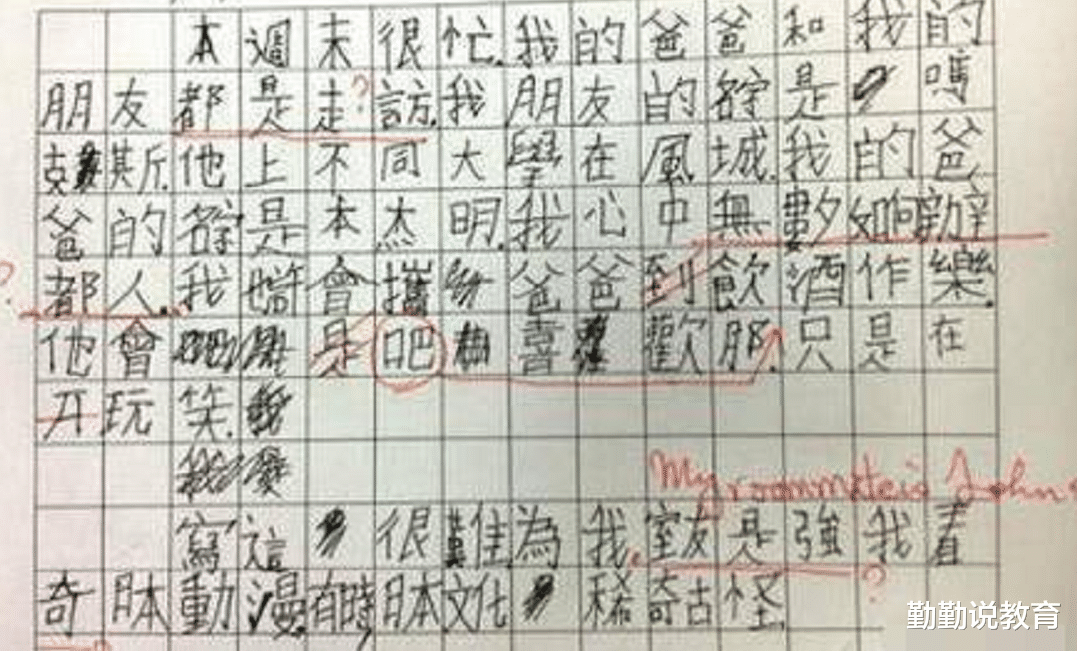 本週末很忙.我的爸爸和我的
朋友都是走?訪.我朋友的名字是嗎
克斯.他上不同大學在風城.我的爸
爸的名字是本杰明.我心中無數如何辦
?都人.我會攜爸爸到飲酒作樂.
他會是吧喜歡那.只是在
开玩笑.
My roommate is John
寫這很難為我.室友是強我看
?
奇日本動漫.有時日本文化稀奇古怪.
勤勤说教育